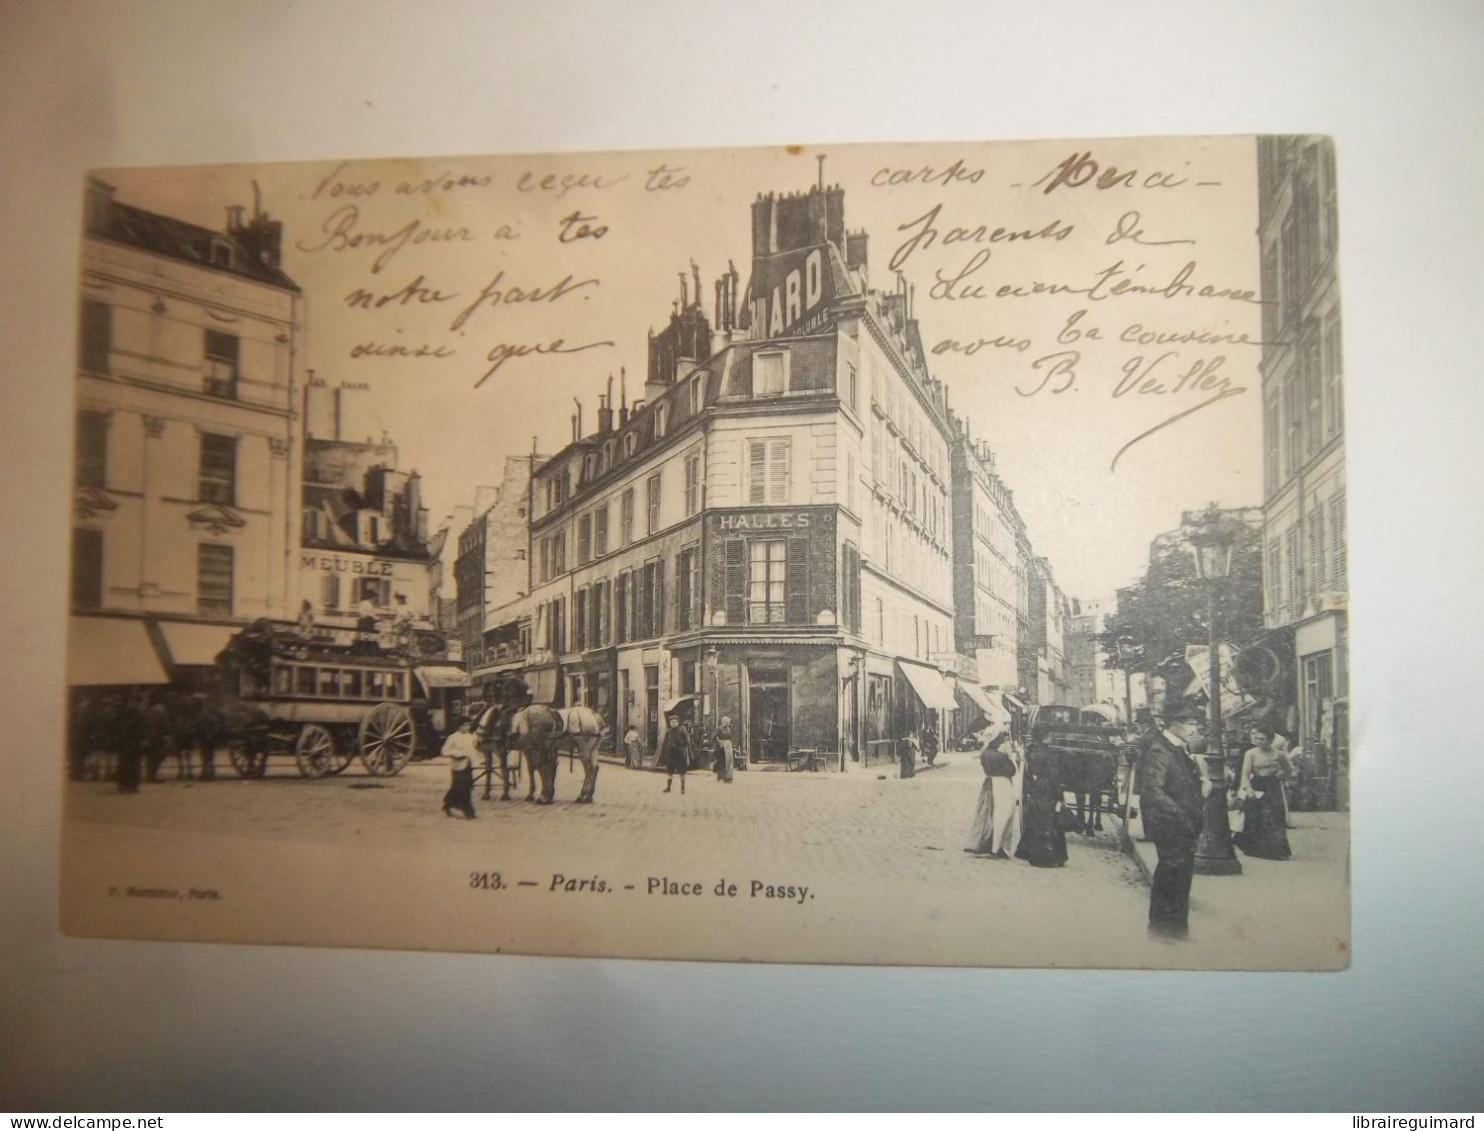 Nous avons reçu tes cartes - Merci -
Bonjour à tes parents de
notre part. Lucien t'embrasse
ainsi que nous Ta cousine
B.
ARD
SOLUBLE
HALLES
MEUBLÉ
313. — Paris. - Place de Passy.
Paris.
delcampe.net
libraireguimard